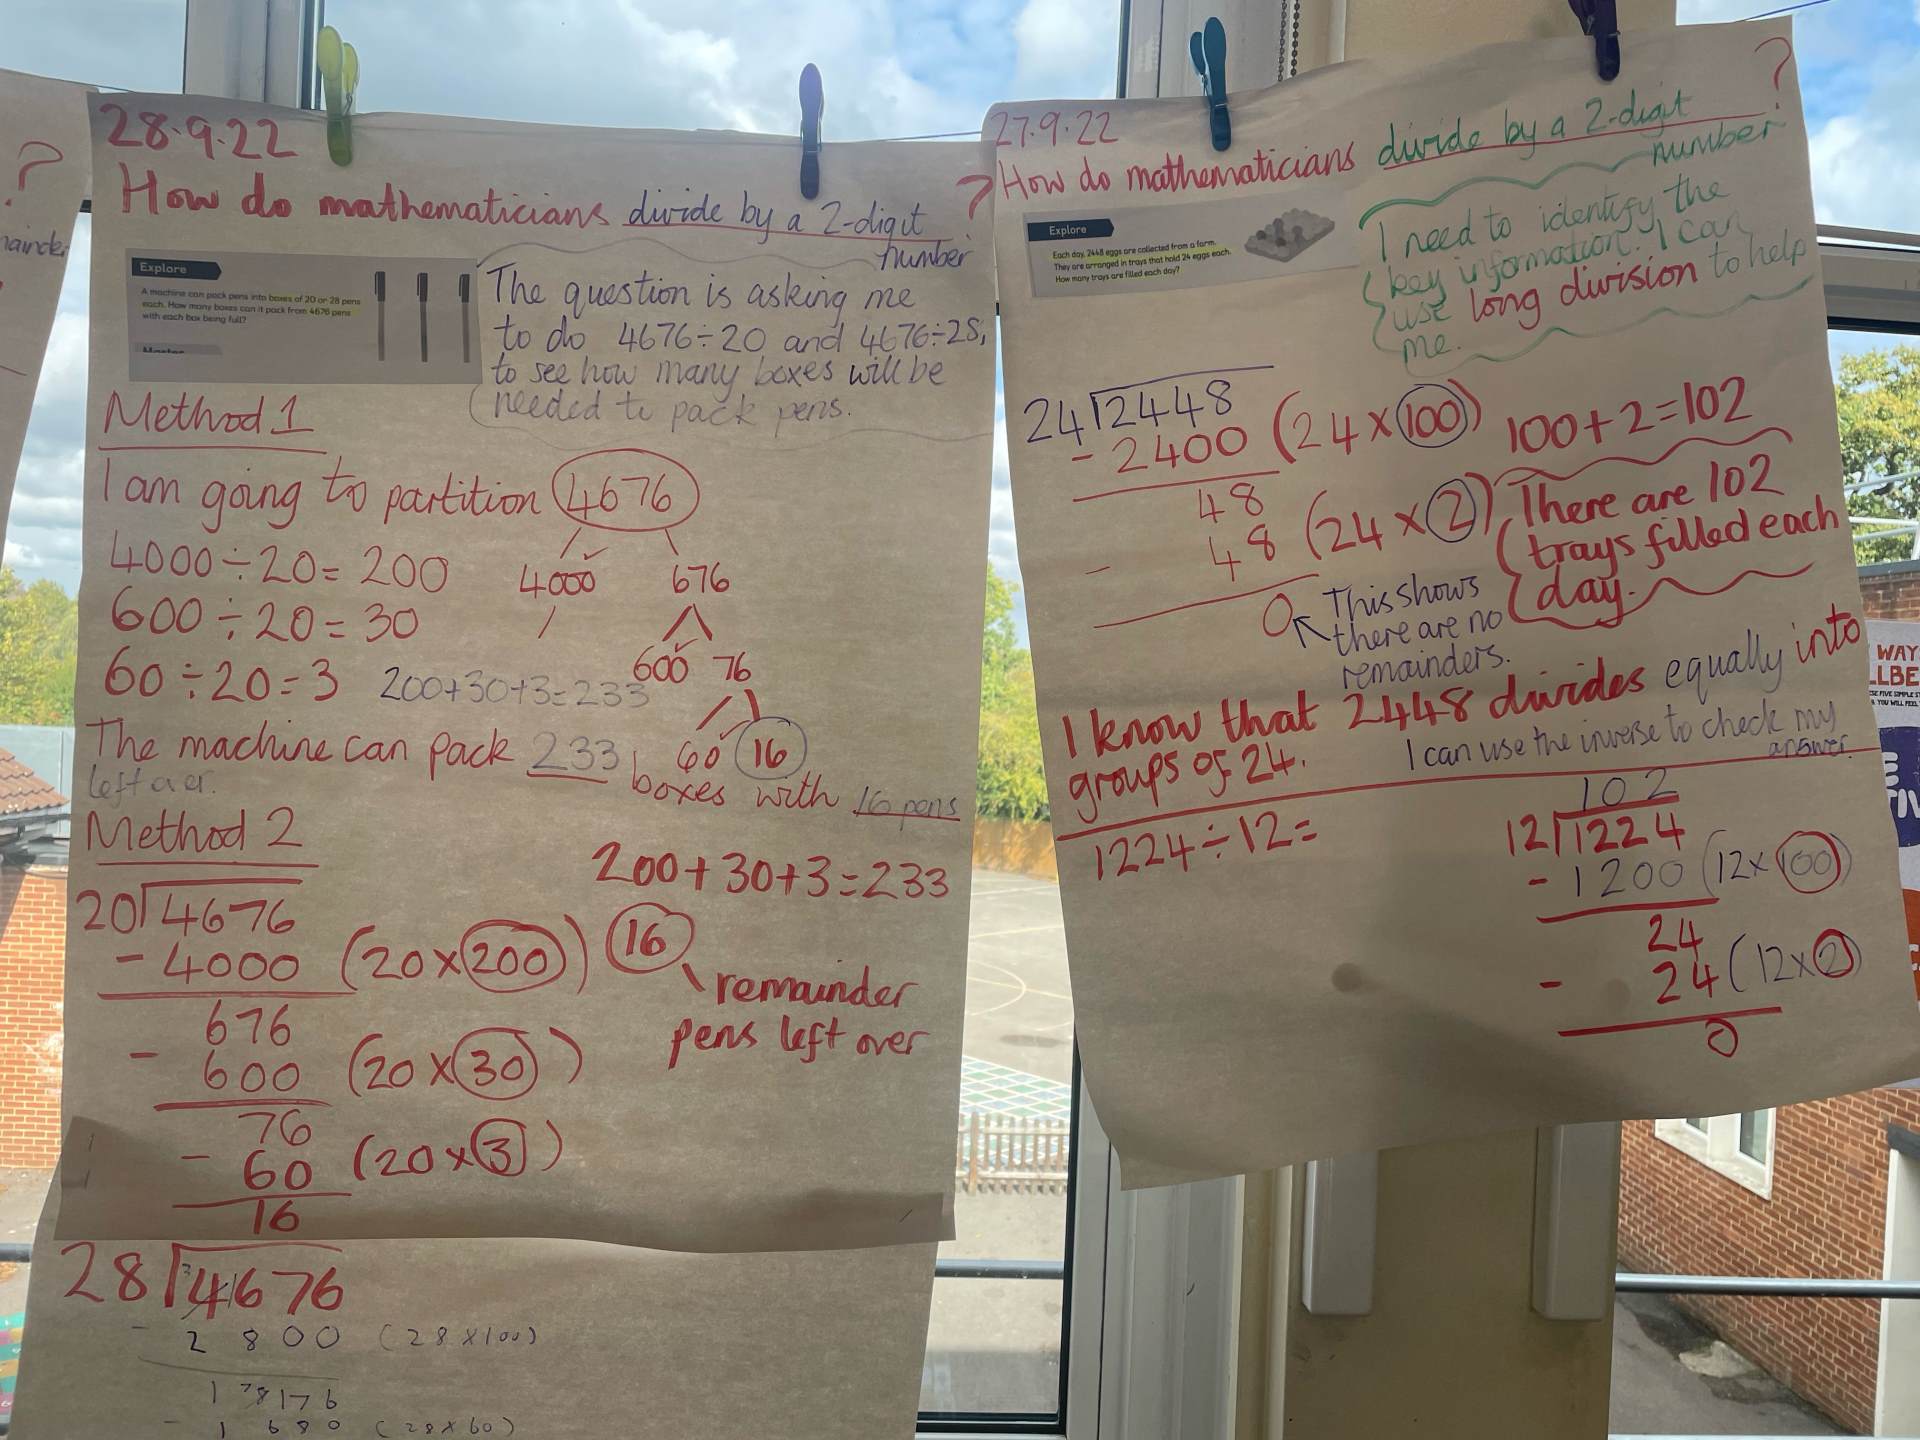 ?
28.9.22
How do mathematicians divide by a 2-digit number ?
Explore
A machine can pack pens into boxes of 20 or 28 pens
each. How many boxes can it pack from 4676 pens
with each box being full?
Master
The question is asking me
to do 4676÷20 and 4676÷28,
to see how many boxes will be
needed to pack pens.
Method 1
I am going to partition 4676
4000÷20= 200
4000 676
600÷20= 30
600 76
60÷20=3
200+30+3=233
60 16
The machine can pack 233 boxes with 16 pens
left over.
Method 2
200+30+3=233
20 4676
- 4000 (20×200)
16
remainder
pens left over
676
- 600 (20×30)
76
- 60 (20×3)
16
28 4676
3 1
- 2800 (28×100)
1 7 8 1 7 6
- 1680 (28×60)
27.9.22
How do mathematicians divide by a 2-digit number ?
Explore
Each day, 2448 eggs are collected from a farm.
They are arranged in trays that hold 24 eggs each.
How many trays are filled each day?
I need to identify the
key information. I can
use long division to help
me.
24 2448
- 2400 (24×100)
100+2=102
48
- 48 (24×2)
There are 102
trays filled each
day.
0
This shows
there are no
remainders.
I know that 2448 divides equally into
groups of 24.
I can use the inverse to check my
answer.
1224÷12=
102
12 1224
- 1200 (12×100)
24
- 24 (12×2)
0
WAY
LLBE